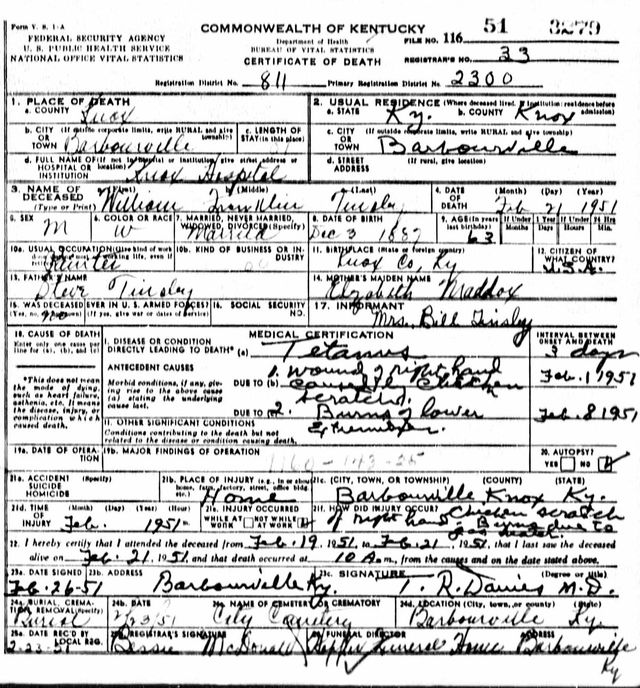 Form V. S. 1-A
FEDERAL SECURITY AGENCY
U. S. PUBLIC HEALTH SERVICE
NATIONAL OFFICE VITAL STATISTICS
COMMONWEALTH OF KENTUCKY
Department of Health
BUREAU OF VITAL STATISTICS
CERTIFICATE OF DEATH
FILE NO. 116 51 3279
REGISTRAR'S NO. 33
Registration District No. 811 Primary Registration District No. 2300
1. PLACE OF DEATH
a. COUNTY Knox
2. USUAL RESIDENCE (Where deceased lived. If institution: residence before admission)
a. STATE Ky. b. COUNTY Knox
b. CITY (If outside corporate limits, write RURAL and give township)
OR TOWN Barbourville
c. LENGTH OF STAY (in this place)
c. CITY (If outside corporate limits, write RURAL and give township)
OR TOWN Barbourville
d. FULL NAME OF (If not in hospital or institution, give street address or location)
HOSPITAL OR INSTITUTION Knox Hospital
d. STREET ADDRESS (If rural, give location)
3. NAME OF DECEASED (Type or Print) (First) (Middle) (Last)
William Franklin Tinsley
4. DATE OF DEATH (Month) (Day) (Year)
Feb 21 1951
5. SEX M
6. COLOR OR RACE W
7. MARRIED, NEVER MARRIED, WIDOWED, DIVORCED (Specify) Married
8. DATE OF BIRTH Dec 3 1887
9. AGE (In years last birthday) 63
If Under 1 Year Months Days
If Under 24 Hrs Hours Min.
10a. USUAL OCCUPATION (Give kind of work done during most of working life, even if retired)
10b. KIND OF BUSINESS OR INDUSTRY
11. BIRTHPLACE (State or foreign country) Knox Co, Ky
12. CITIZEN OF WHAT COUNTRY? U.S.A.
13. FATHER'S NAME Steve Tinsley
14. MOTHER'S MAIDEN NAME Elizabeth Maddox
15. WAS DECEASED EVER IN U. S. ARMED FORCES?
(Yes, no, or unknown) (If yes, give war or dates of service) no
16. SOCIAL SECURITY NO.
17. INFORMANT Mrs. Bill Tinsley
18. CAUSE OF DEATH
Enter only one cause per line for (a), (b), and (c)
*This does not mean the mode of dying, such as heart failure, asthenia, etc. It means the disease, injury, or complication which caused death.
MEDICAL CERTIFICATION
INTERVAL BETWEEN ONSET AND DEATH
I. DISEASE OR CONDITION DIRECTLY LEADING TO DEATH* (a) Tetanus 3 days
ANTECEDENT CAUSES
Morbid conditions, if any, giving rise to the above cause (a) stating the underlying cause last.
DUE TO (b) 1. Wound of right hand caused by chicken scratch. Feb. 1 1951
DUE TO (c) 2. Burns of lower extremities. Feb. 8 1951
II. OTHER SIGNIFICANT CONDITIONS
Conditions contributing to the death but not related to the disease or condition causing death.
19a. DATE OF OPERATION
19b. MAJOR FINDINGS OF OPERATION
20. AUTOPSY?
YES NO
21a. ACCIDENT SUICIDE HOMICIDE (Specify)
21b. PLACE OF INJURY (e.g., in or about home, farm, factory, street, office bldg. etc.) Home
21c. (CITY, TOWN, OR TOWNSHIP) (COUNTY) (STATE)
Barbourville Knox Ky.
21d. TIME OF INJURY (Month) (Day) (Year) (Hour)
Feb. 1951
21e. INJURY OCCURRED WHILE AT WORK NOT WHILE AT WORK
21f. HOW DID INJURY OCCUR? Chicken scratch of right hand. Burns due to gas heater.
22. I hereby certify that I attended the deceased from Feb. 19, 1951 to Feb. 21, 1951, that I last saw the deceased
alive on Feb. 21, 1951, and that death occurred at 10 A m., from the causes and on the date stated above.
23a. DATE SIGNED Feb. 26-51
23b. ADDRESS Barbourville Ky.
23c. SIGNATURE (Degree or title) T. R. Davies M.D.
24a. BURIAL, CREMATION, REMOVAL (Specify) Burial
24b. DATE 2/23/51
24c. NAME OF CEMETERY OR CREMATORY City Cemetery
24d. LOCATION (City, town, or county) (State)
Barbourville Ky.
25a. DATE REC'D BY LOCAL REG. 2-23-51
25b. REGISTRAR'S SIGNATURE Bessie McDonald
FUNERAL DIRECTOR ADDRESS
Funeral Home Barbourville Ky